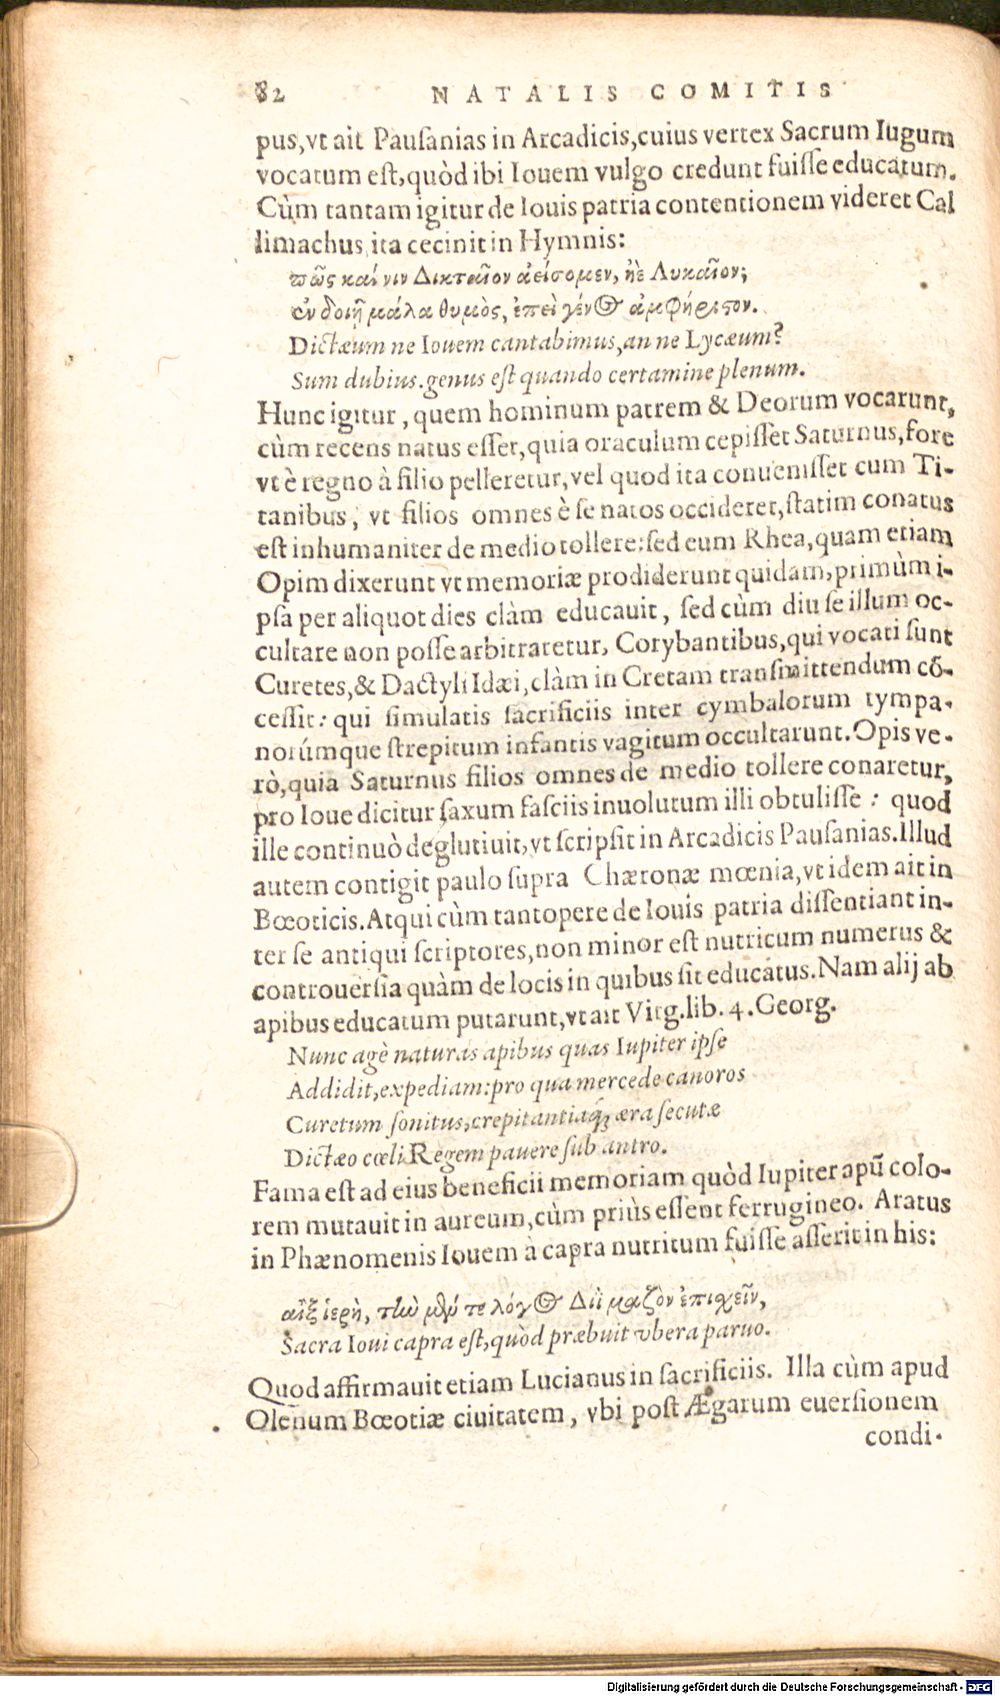 82 NATALIS COMITIS
pus, vt ait Pausanias in Arcadicis, cuius vertex Sacrum Iugum
vocatum est, quòd ibi Iouem vulgo credunt fuisse educatum.
Cùm tantam igitur de Iouis patria contentionem videret Cal
limachus ita cecinit in Hymnis:
πῶς καί νιν Δικταῖον ἀείσομεν, ἠὲ Λυκαῖον;
ἐν δοιῇ μάλα θυμὸς, ἐπεὶ γένος ἀμφήριστον.
Dictæum ne Iouem cantabimus, an ne Lycæum?
Sum dubius. genus est quando certamine plenum.
Hunc igitur, quem hominum patrem & Deorum vocarunt,
cùm recens natus esset, quia oraculum cepisset Saturnus, fore
vt è regno à filio pelleretur, vel quod ita conuenisset cum Ti-
tanibus, vt filios omnes è se natos occideret, statim conatus
est inhumaniter de medio tollere: sed eum Rhea, quam etiam
Opim dixerunt vt memoriæ prodiderunt quidam, primùm i-
psa per aliquot dies clàm educauit, sed cùm diu se illum oc-
cultare non posse arbitraretur, Corybantibus, qui vocati sunt
Curetes, & Dactyli Idæi, clàm in Cretam transmittendum cō-
cessit: qui simulatis sacrificiis inter cymbalorum tympa-
norúmque strepitum infantis vagitum occultarunt. Opis ve-
rò, quia Saturnus filios omnes de medio tollere conaretur,
pro Ioue dicitur saxum fasciis inuolutum illi obtulisse: quod
ille continuò deglutiuit, vt scripsit in Arcadicis Pausanias. Illud
autem contigit paulo supra Chæronæ mœnia, vt idem ait in
Bœoticis. Atqui cùm tantopere de Iouis patria dissentiant in-
ter se antiqui scriptores, non minor est nutricum numerus &
controuersia quàm de locis in quibus sit educatus. Nam alij ab
apibus educatum putarunt, vt ait Virg. lib. 4. Georg.
Nunc agè naturas apibus quas Iupiter ipse
Addidit, expediam: pro qua mercede canoros
Curetum sonitus, crepitantiaq; æra secutæ
Dictæo cœli Regem pauere sub antro.
Fama est ad eius beneficii memoriam quòd Iupiter apū colo-
rem mutauit in aureum, cùm priùs essent ferrugineo. Aratus
in Phænomenis Iouem à capra nutritum fuisse asserit in his:
αἲξ ἱερὴ, τὴν μέν τε λόγος Διῒ μαζὸν ἐπισχεῖν,
Sacra Ioui capra est, quòd præbuit vbera paruo.
Quod affirmauit etiam Lucianus in sacrificiis. Illa cùm apud
Olenum Bœotiæ ciuitatem, vbi post Ægarum euersionem
condi-
Digitalisierung gefördert durch die Deutsche Forschungsgemeinschaft - DFG